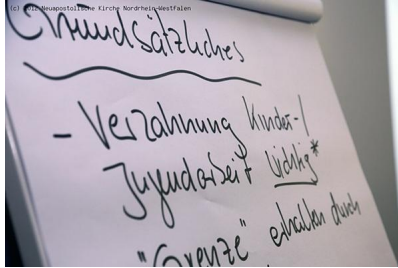 (c) 2012 Neuapostolische Kirche Nordrhein-Westfalen
Grundsätzliches
- Verzahnung Kinder-/
Jugendarbeit wichtig*
"Grenze" erhalten durch